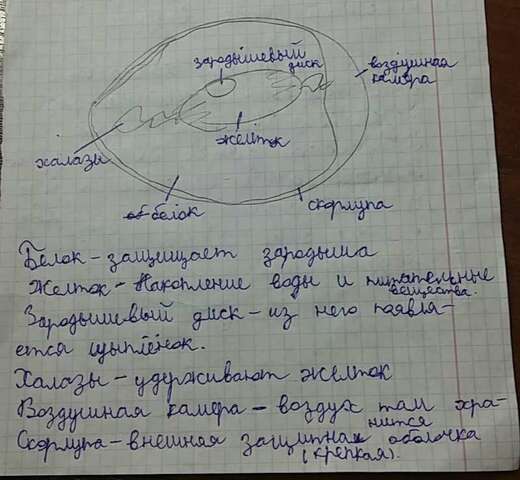 зародышевый
диск
воздушная
камера
желток
халазы
белок
скорлупа
Белок - защищает зародыша
Желток - Накопление воды и питательные
вещества.
Зародышевый диск - из него появля-
ется цыплёнок.
Халазы - удерживают желток
Воздушная камера - воздух там хра-
нится
Скорлупа - внешняя защитная оболочка
(крепкая).